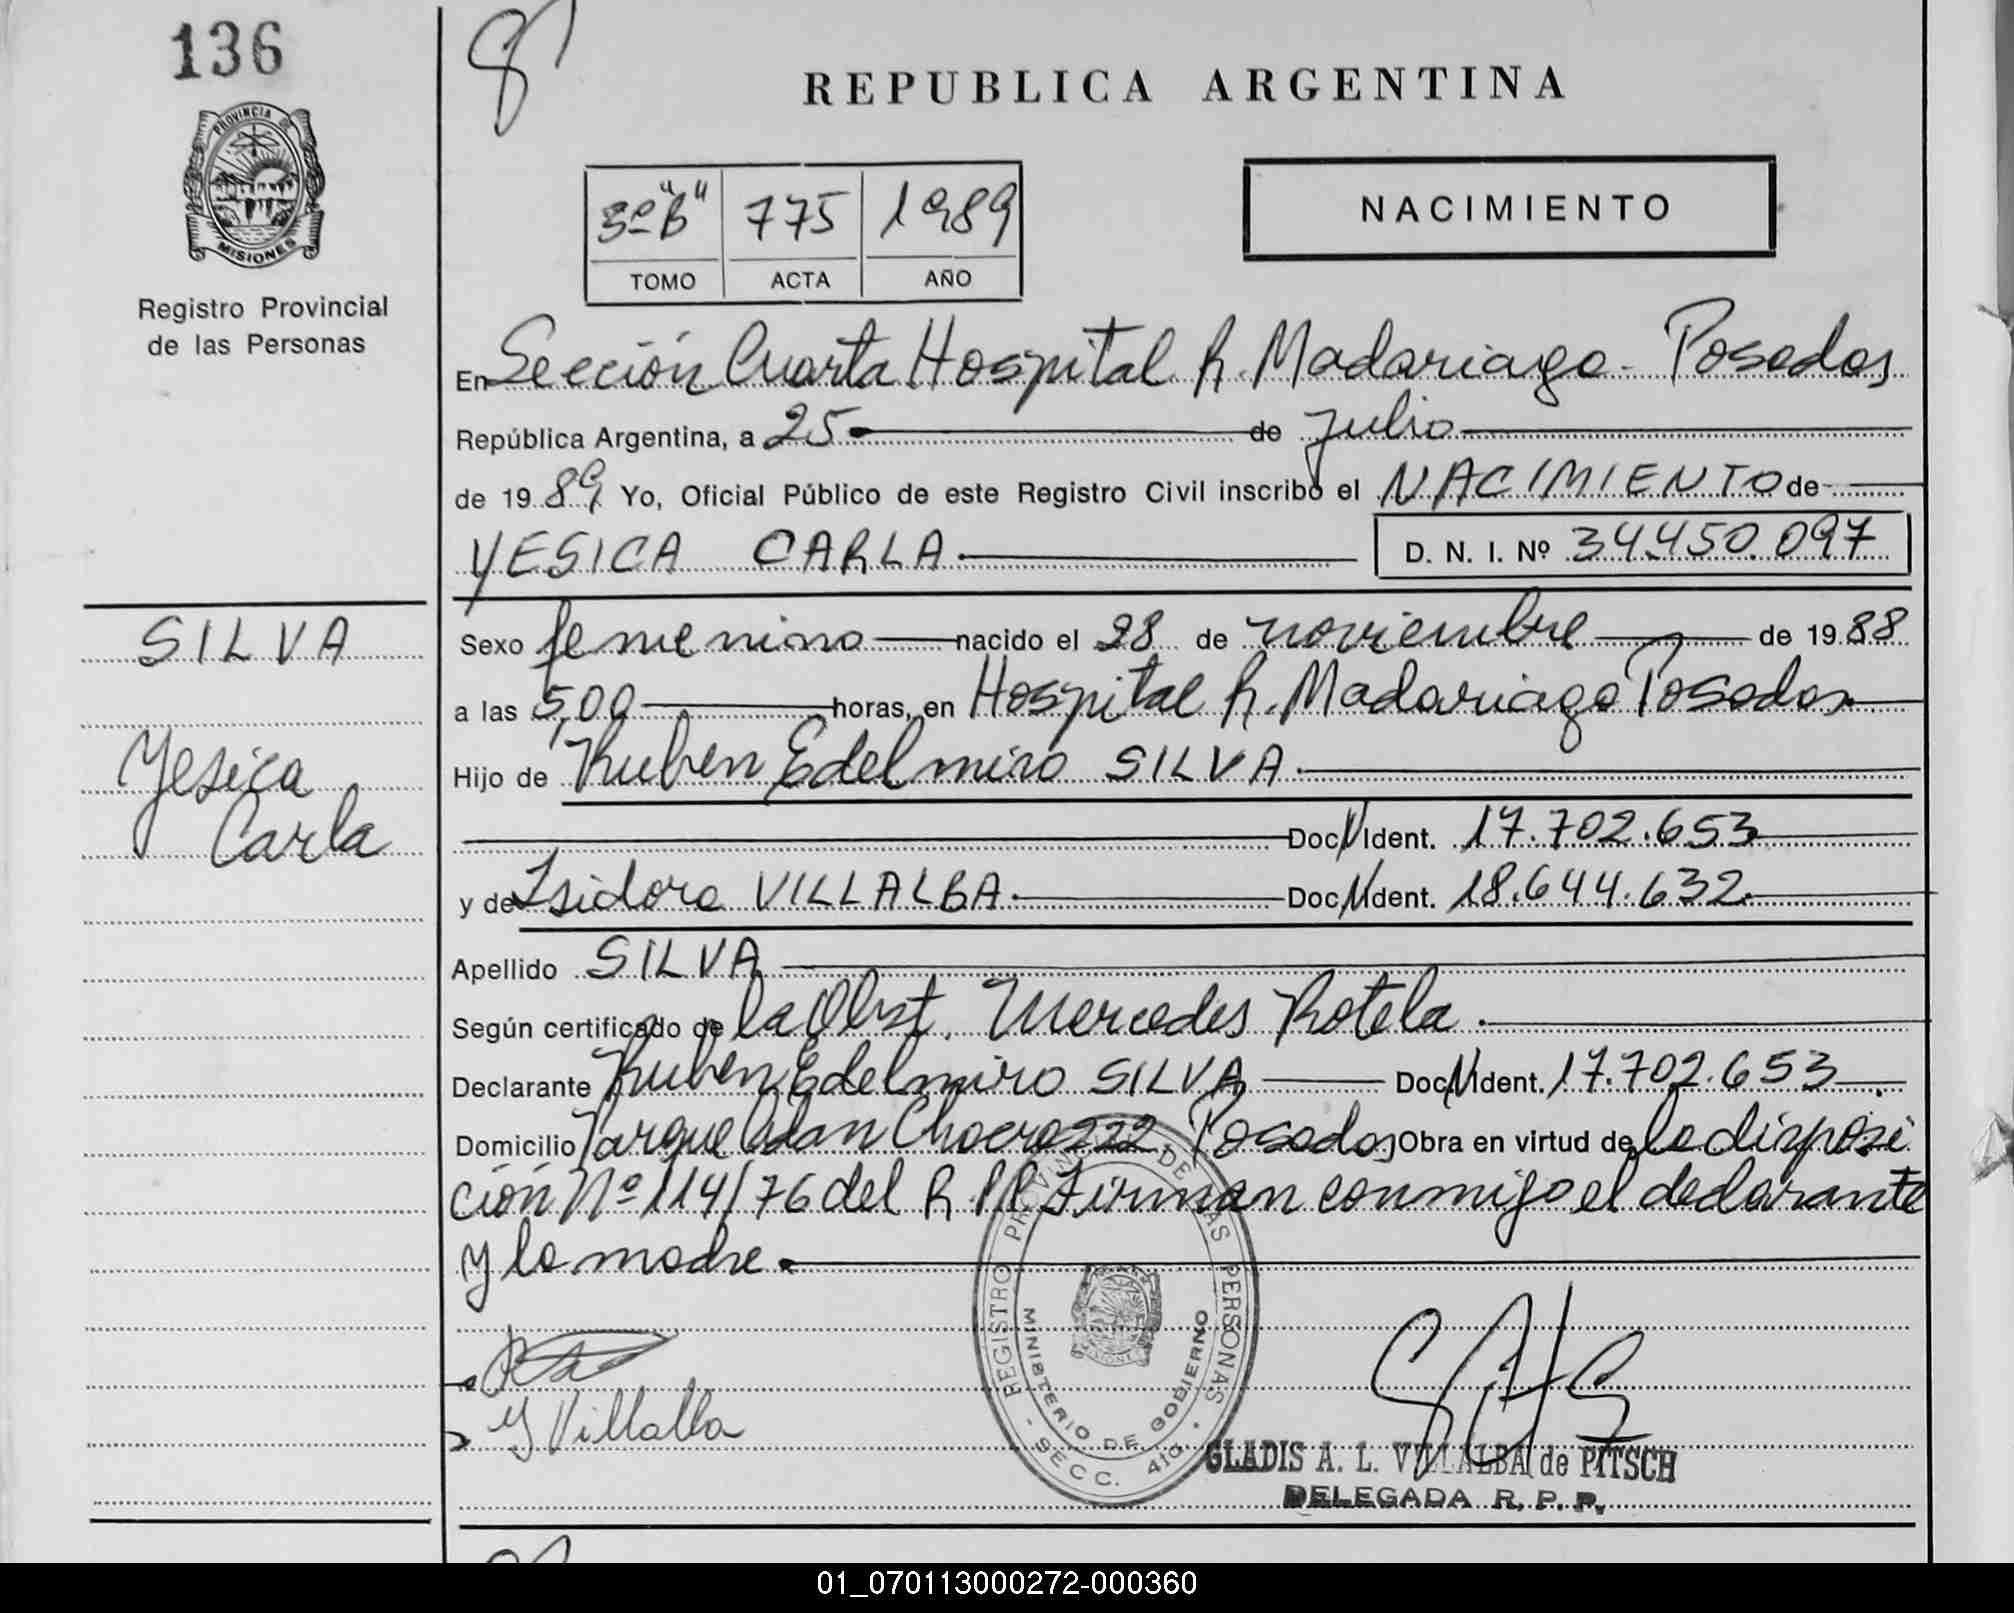 136
PROVINCIA DE
MISIONES
Registro Provincial
de las Personas
REPUBLICA ARGENTINA
3º "B" 775 1989
TOMO ACTA AÑO
NACIMIENTO
En Sección Cuarta Hospital R. Madariaga - Posadas
República Argentina, a 25 de Julio
de 1989 Yo, Oficial Público de este Registro Civil inscribo el NACIMIENTO de
YESICA CARLA D. N. I. Nº 34.450.097
SILVA
Yesica
Carla
Sexo femenino nacido el 28 de noviembre de 1988
a las 5,00 horas, en Hospital R. Madariaga Posadas
Hijo de Ruben Edelmiro SILVA
Doc. N Ident. 17.702.653
y de Isidora VILLALBA Doc. N Ident. 18.644.632
Apellido SILVA
Según certificado de la Obst. Mercedes Rotela.
Declarante Ruben Edelmiro SILVA Doc. N Ident. 17.702.653
Domicilio Parque Adan 222 Posadas Obra en virtud de la disposi
ción Nº 114/76 del R.P.P. Firman conmigo el declarante
y la madre
Y Villalba
REGISTRO PROVINCIAL DE LAS PERSONAS
MINISTERIO DE GOBIERNO
SECC. 4ta.
GLADIS A. L. VILLALBA de PITSCH
DELEGADA R. P. P.
01_070113000272-000360